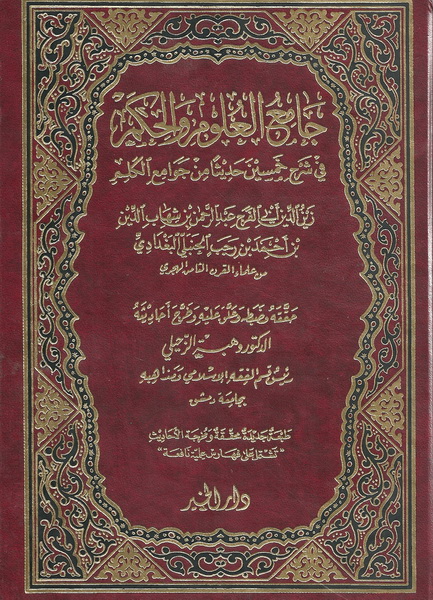 جامع العلوم والحكم
في شرح خمسين حديثا من جوامع الكلم
زين الدين أبي الفرج عبد الرحمن بن شهاب الدين
بن أحمد بن رجب الحنبلي البغدادي
من علماء القرن الثامن الهجري
حققه وضبطه وعلق عليه وخرج أحاديثه
الدكتور وهبة الزحيلي
رئيس قسم الفقه الإسلامي ومذاهبه
بجامعة دمشق
طبعة جديدة محققة ومخرجة الأحاديث
"تشتمل على فهارس علمية نافعة"
دار الخير